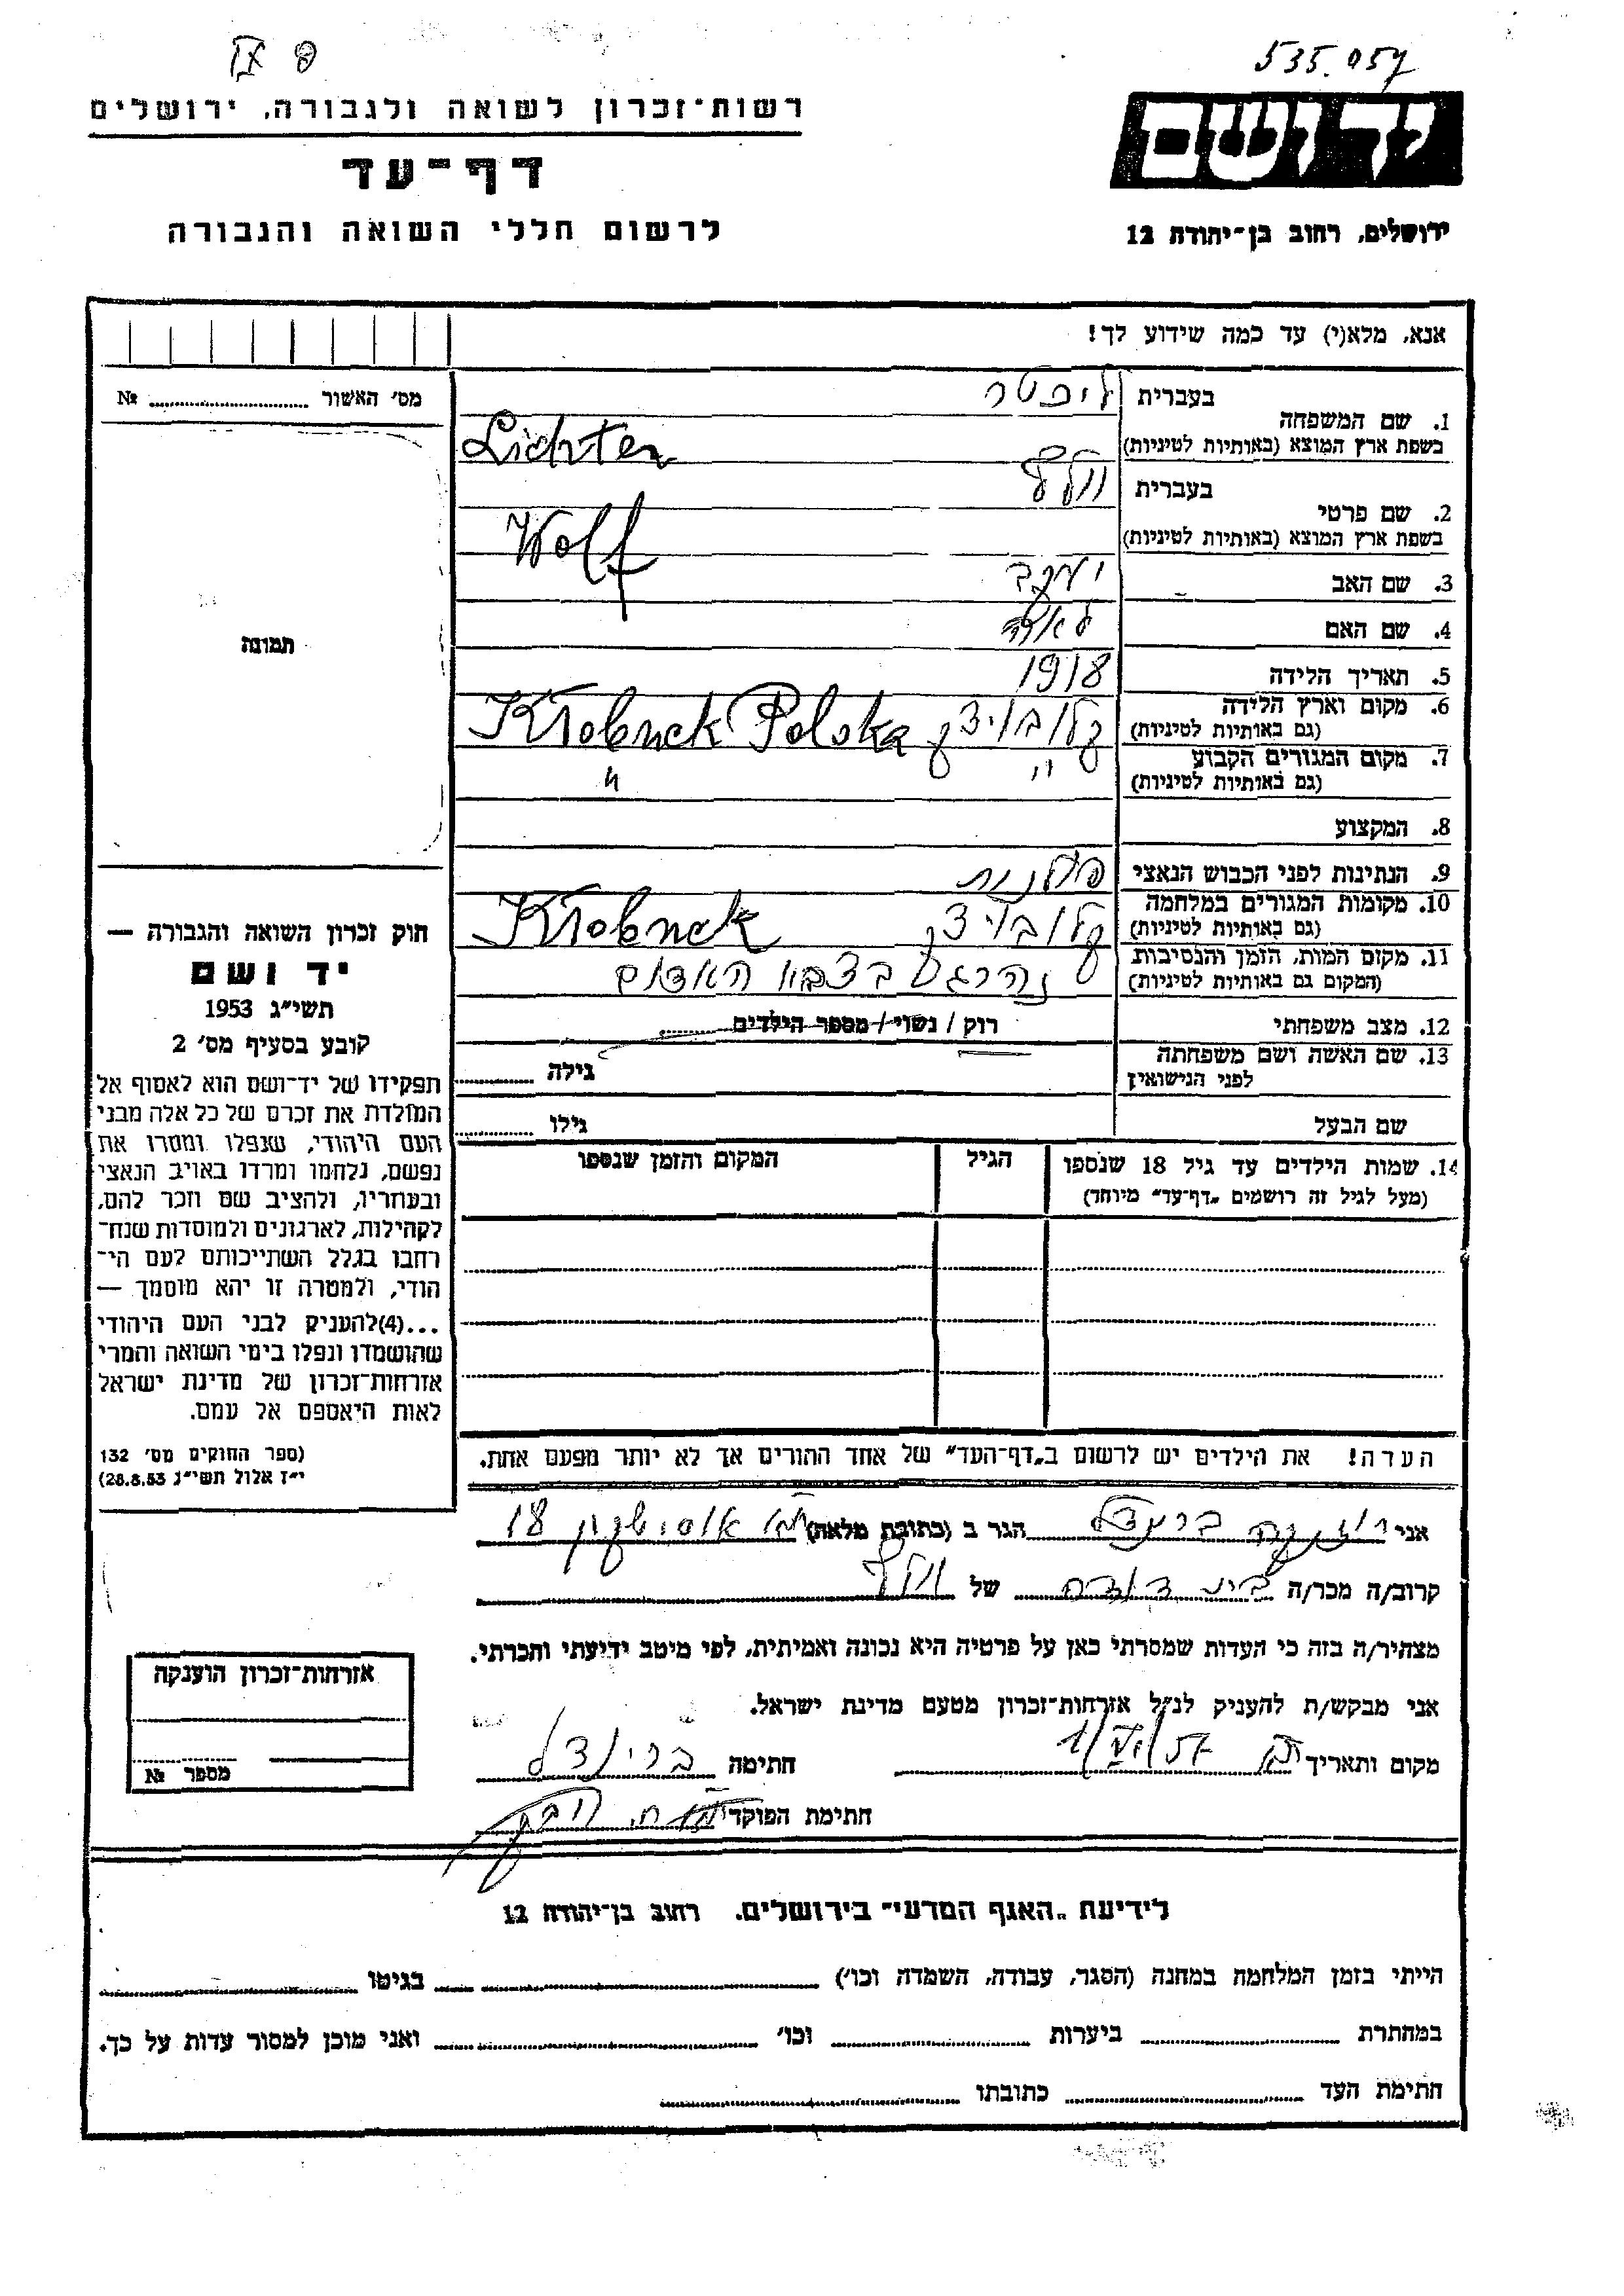 535.057
IX 8
יד ושם
ירושלים, רחוב בן-יהודה 12
רשות-זכרון לשואה ולגבורה, ירושלים
דף-עד
לרשום חללי השואה והגבורה
אנא, מלא(י) עד כמה שידוע לך!
מס' האשור № 
תמונה
1. שם המשפחה
בעברית ליכטר
בשפת ארץ המוצא (באותיות לטיניות) Lichter
2. שם פרטי
בעברית וולף
בשפת ארץ המוצא (באותיות לטיניות) Wolf
3. שם האב יעקב
4. שם האם
5. תאריך הלידה 1918
6. מקום וארץ הלידה
(גם באותיות לטיניות) Polska
7. מקום המגורים הקבוע "
(גם באותיות לטיניות) "
8. המקצוע
9. הנתינות לפני הכבוש הנאצי פולנית
10. מקומות המגורים במלחמה
(גם באותיות לטיניות)
11. מקום המות, הזמן והנסיבות
(המקום גם באותיות לטיניות) נהרג בצבא האדום
12. מצב משפחתי רוק / נשוי / מספר הילדים
13. שם האשה ושם משפחתה
לפני הנישואין גילה
שם הבעל גילו
14. שמות הילדים עד גיל 18 שנספו הגיל המקום והזמן שנספו
(מעל לגיל זה רושמים "דף-עד" מיוחד)
חוק זכרון השואה והגבורה —
יד ושם
תשי"ג 1953
קובע בסעיף מס' 2
תפקידו של יד-ושם הוא לאסוף אל
המולדת את זכרם של כל אלה מבני
העם היהודי, שנפלו ומסרו את
נפשם, נלחמו ומרדו באויב הנאצי
ובעוזריו, ולהציב שם וזכר להם,
לקהילות, לארגונים ולמוסדות שנח-
רבו בגלל השתייכותם לעם הי-
הודי, ולמטרה זו יהא מוסמך —
...(4)להעניק לבני העם היהודי
שהושמדו ונפלו בימי השואה והמרי
אזרחות-זכרון של מדינת ישראל
לאות היאספם אל עמם.
(ספר החוקים מס' 132
י"ז אלול תשי"ג 28.8.53)
הערה! את הילדים יש לרשום ב"דף-העד" של אחד ההורים אך לא יותר מפעם אחת.
אני הגר ב (כתובת מלאה) ת"א אוסישקין 18
קרוב/ה מכר/ה בת דודה של וולף
מצהיר/ה בזה כי העדות שמסרתי כאן על פרטיה היא נכונה ואמיתית, לפי מיטב ידיעתי והכרתי.
אני מבקש/ת להעניק לנ"ל אזרחות-זכרון מטעם מדינת ישראל.
מקום ותאריך חתימה
חתימת הפוקד
אזרחות-זכרון הוענקה
מספר №
לידיעת "האגף המדעי" בירושלים, רחוב בן-יהודה 12
הייתי בזמן המלחמה במחנה (הסגר, עבודה, השמדה וכו') בגיטו
במחתרת ביערות וכו' ואני מוכן למסור עדות על כך.
חתימת העד כתובתו